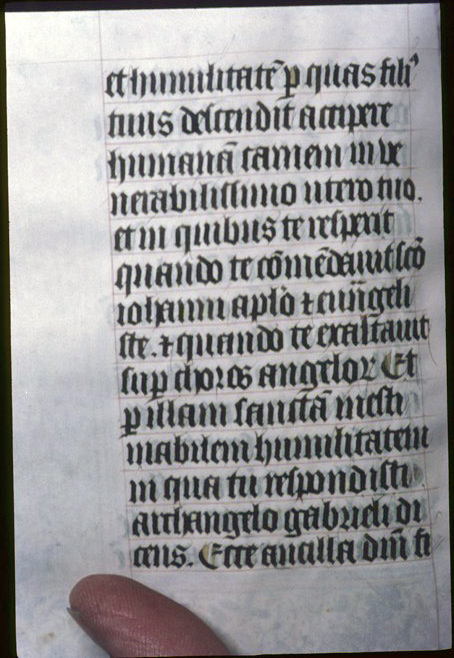 et humilitatē ꝑ quas fili᷒
tuus descendit accipere
humanā carnem in ve
nerabilissimo utero tuo.
et in quibus te respexit
quando te cōmēdavit scō
iohanni aplo ⁊ euūgeli
ste. ⁊ quando te exaltavit
suꝑ choros angeloꝝ Et
ꝑ illam sanctā inesti
mabilem humilitatem
in qua tu respondisti
archangelo gabrieli di
cens. Ecce ancilla dn̄i fi